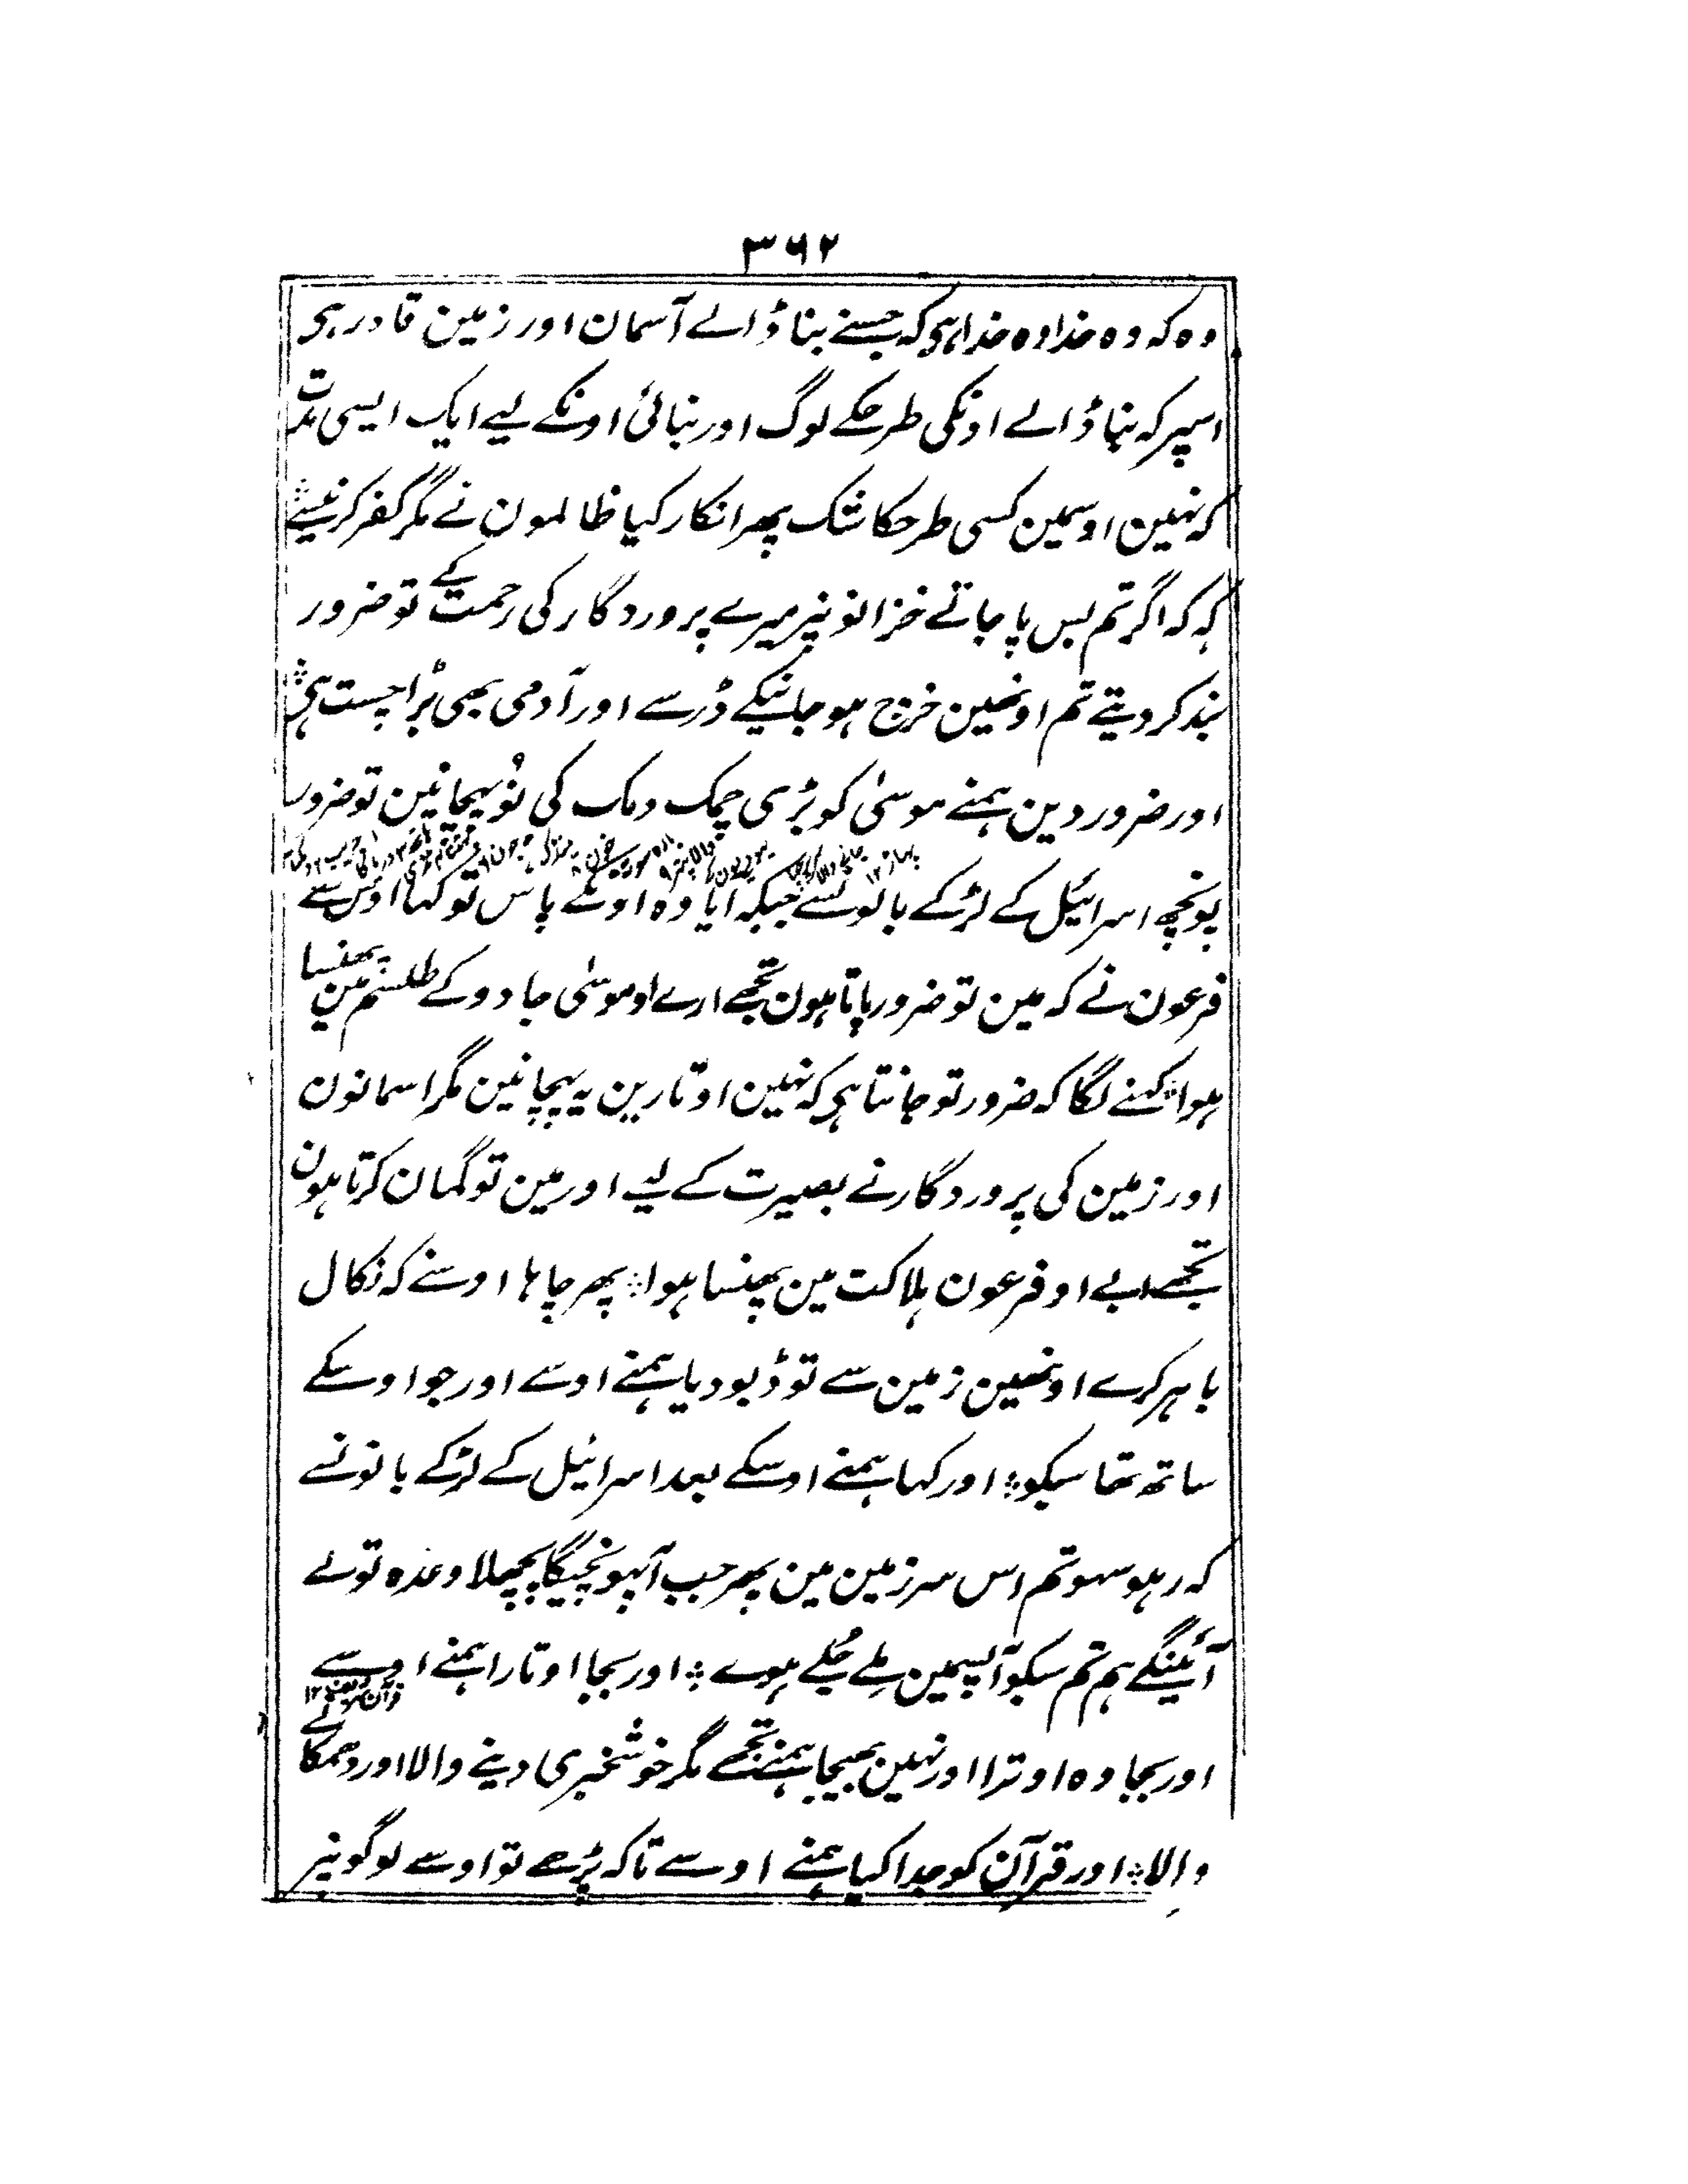 ۳۶۲
وہ کہ وہ خدا وہ خدا ہی کہ جسنے بنا ڈالے آسمان اور زمین قادر ہی
اسپر کہ بنا ڈالے اونکی طرحکے لوگ اور بنائی اونکے لیے ایک ایسی مدت
کہ نہین اوسمین کسی طرحکا شک پھر انکار کیا ظالمون نے مگر کفر کرنیسے
کہہ کہ اگر تم بس پا جاتے خزانونپر میرے پروردگار کی رحمت کے تو ضرور
بند کر دیتے تم اونھین خرج ہو جانیکے ڈر سے اور آدمی بھی بڑا چست ہی
اور ضرور دین ہمنے موسیٰ کو بڑی چمک دمک کی نو پہچانین تو ضرور
پونچھ اسرائیل کے لڑکے بالونسے جبکہ آیا وہ اونکے پاس تو کہا اوس سے
فرعون نے کہ مین تو ضرور پاتا ہون تجھے ارے او موسیٰ جادو کے طلسم مین پھنسا
ہوا ؞ کہنے لگا کہ ضرور تو جانتا ہی کہ نہین اوتارین یہ پہچانین مگر اسمانون
اور زمین کی پروردگار نے بصیرت کے لیے اور مین تو گمان کرتا ہون
تجھے ابے او فرعون ہلاکت مین پھنسا ہوا ؞ پھر چاہا اوسنے کہ نکال
باہر کرے اونھین زمین سے تو ڈبو دیا ہمنے اوسے اور جو اوسکے
ساتھ تھا سبکو ؞ اور کہا ہمنے اوسکے بعد اسرائیل کے لڑکے بالونسے
کہ رہو سہو تم اس سرزمین مین پھر جب آپہونچیگا پچھلا وعدہ تو لے
آئینگے ہم تم سبکو آپسمین ملے جلے ہوے ؞ اور بجا اوتارا ہمنے اوسے
اور بجا وہ اوترا اور نہین بھیجا ہمنے تجھے مگر خوشخبری دینے والا اور دھمکانے
والا ؞ اور قرآن کو جدا کیا ہمنے اوسے تاکہ پڑھے تو اوسے لوگونپر